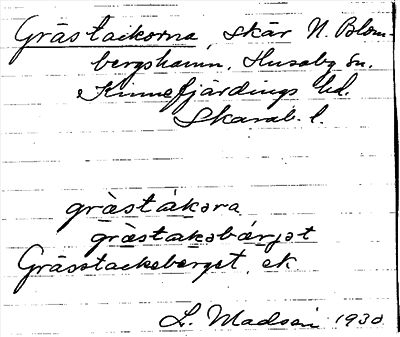 Grästaikorna, skär N. Blom-
bergshamn, Husaby sn.
Kinnefjärdings hd.
Skarab. l.
gràstàkɘra
gràstakɘbǽrjɘt
Grässtackeberget, ek
L. Madsén 1930